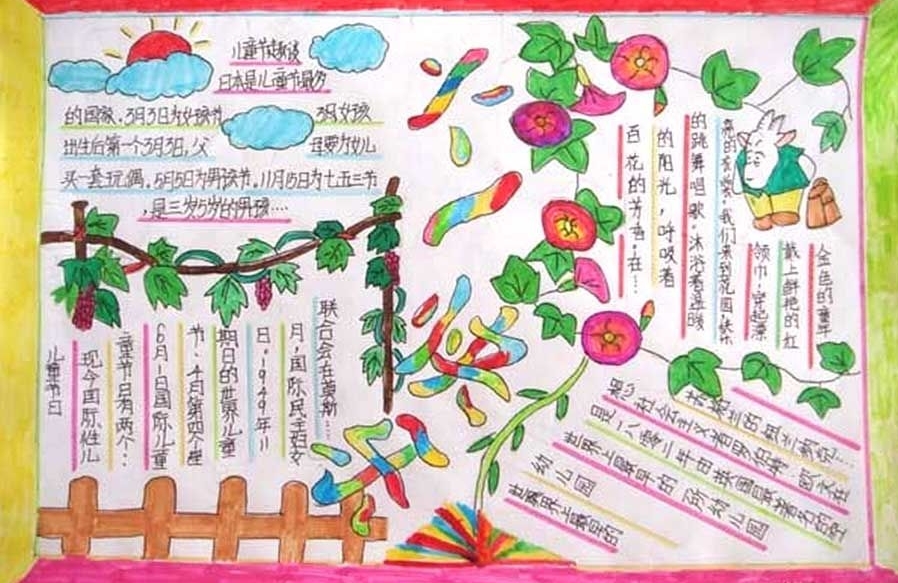 儿童节趣谈
日本是儿童节最多
的国家,3月3日为女孩节
3月女孩
出生后第一个3月3日,父
母要为女儿
买一套玩偶,5月5日为男孩节,11月15日为七五三节
,是三岁5岁的男孩····
少
儿
乐
园
金色的童年
戴上鲜艳的红
领巾,穿起漂
亮的衣裳,我们来到花园,快乐
的跳舞唱歌,沐浴着温暖
的阳光,呼吸着
百花的芳香,在···
儿童节日
现今国际性儿
童节日有两个:
6月1日国际儿童
节、4月第四个星
期日的世界儿童
日。1949年11
月,国际民主妇女
联合会在莫斯···
世界上最早的
幼儿园
世界上最早的一所幼儿园
是一八零二年由英国最著名的空
想社会主义者罗伯特·欧文在
苏格兰的纽兰纳克····